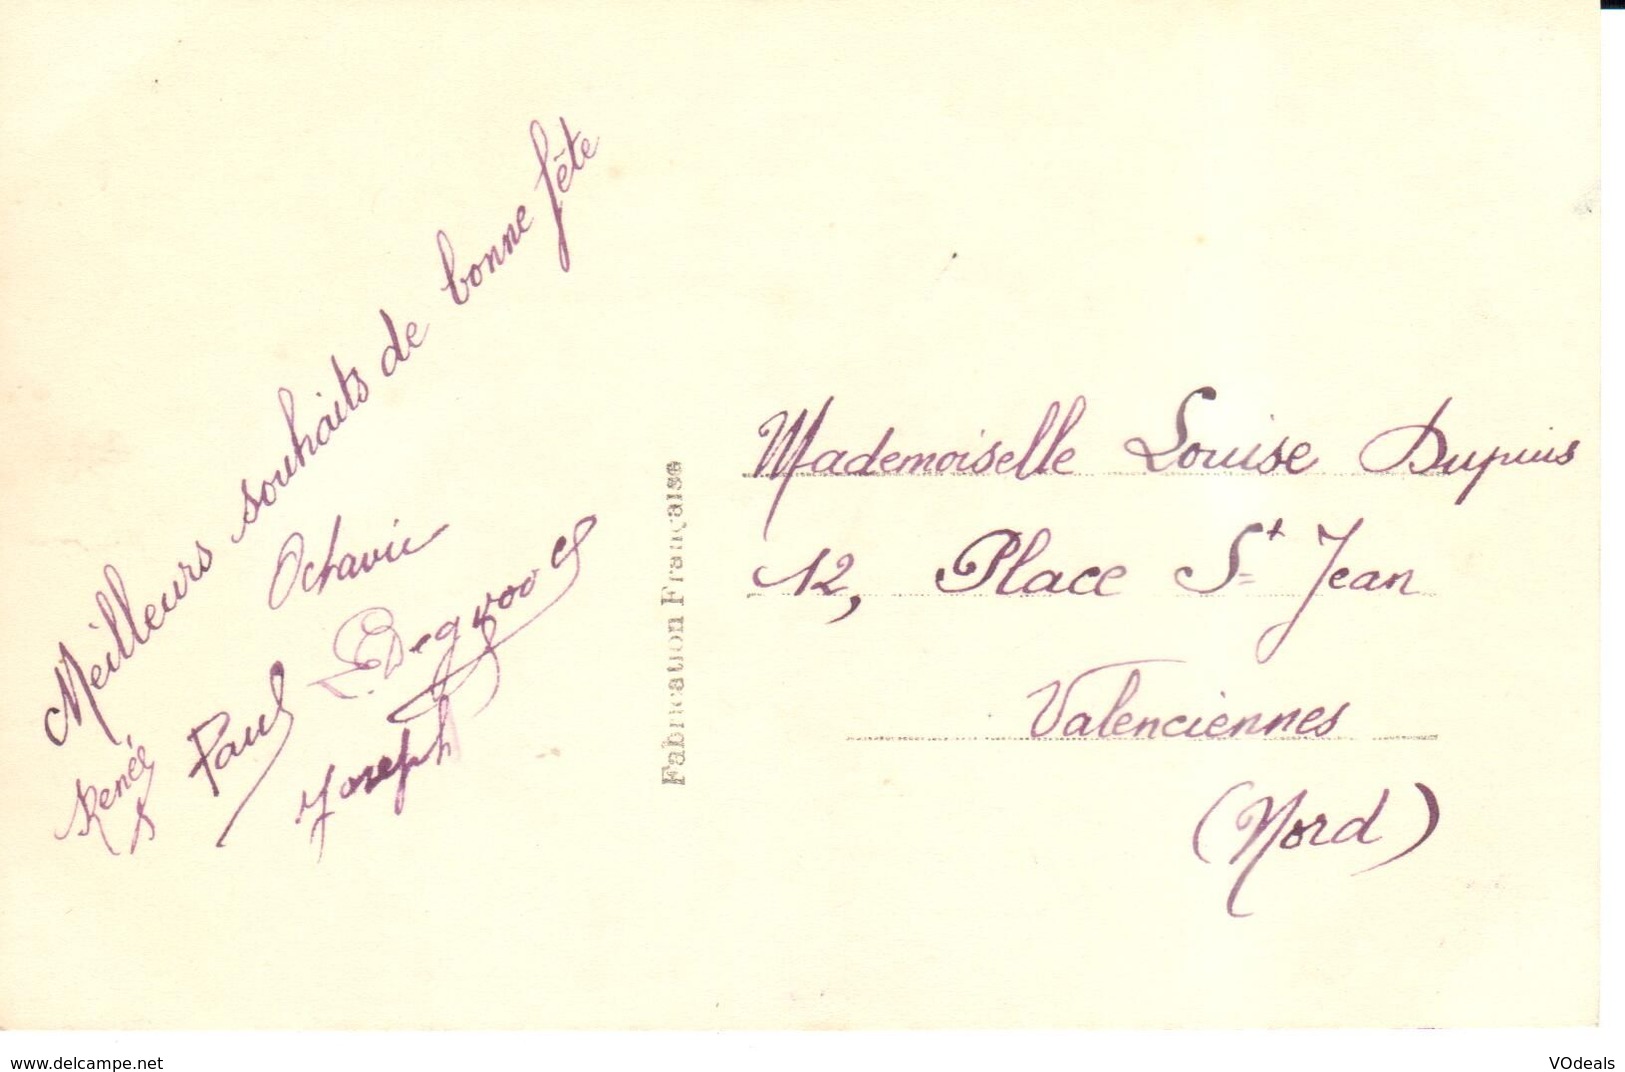 Meilleurs souhaits de bonne fête
Octavie
Renée Paul E. Degroote
Joseph
Fabrication Française
Mademoiselle Louise Dupuis
12, Place St Jean
Valenciennes
(Nord)
www.delcampe.net
VOdeals